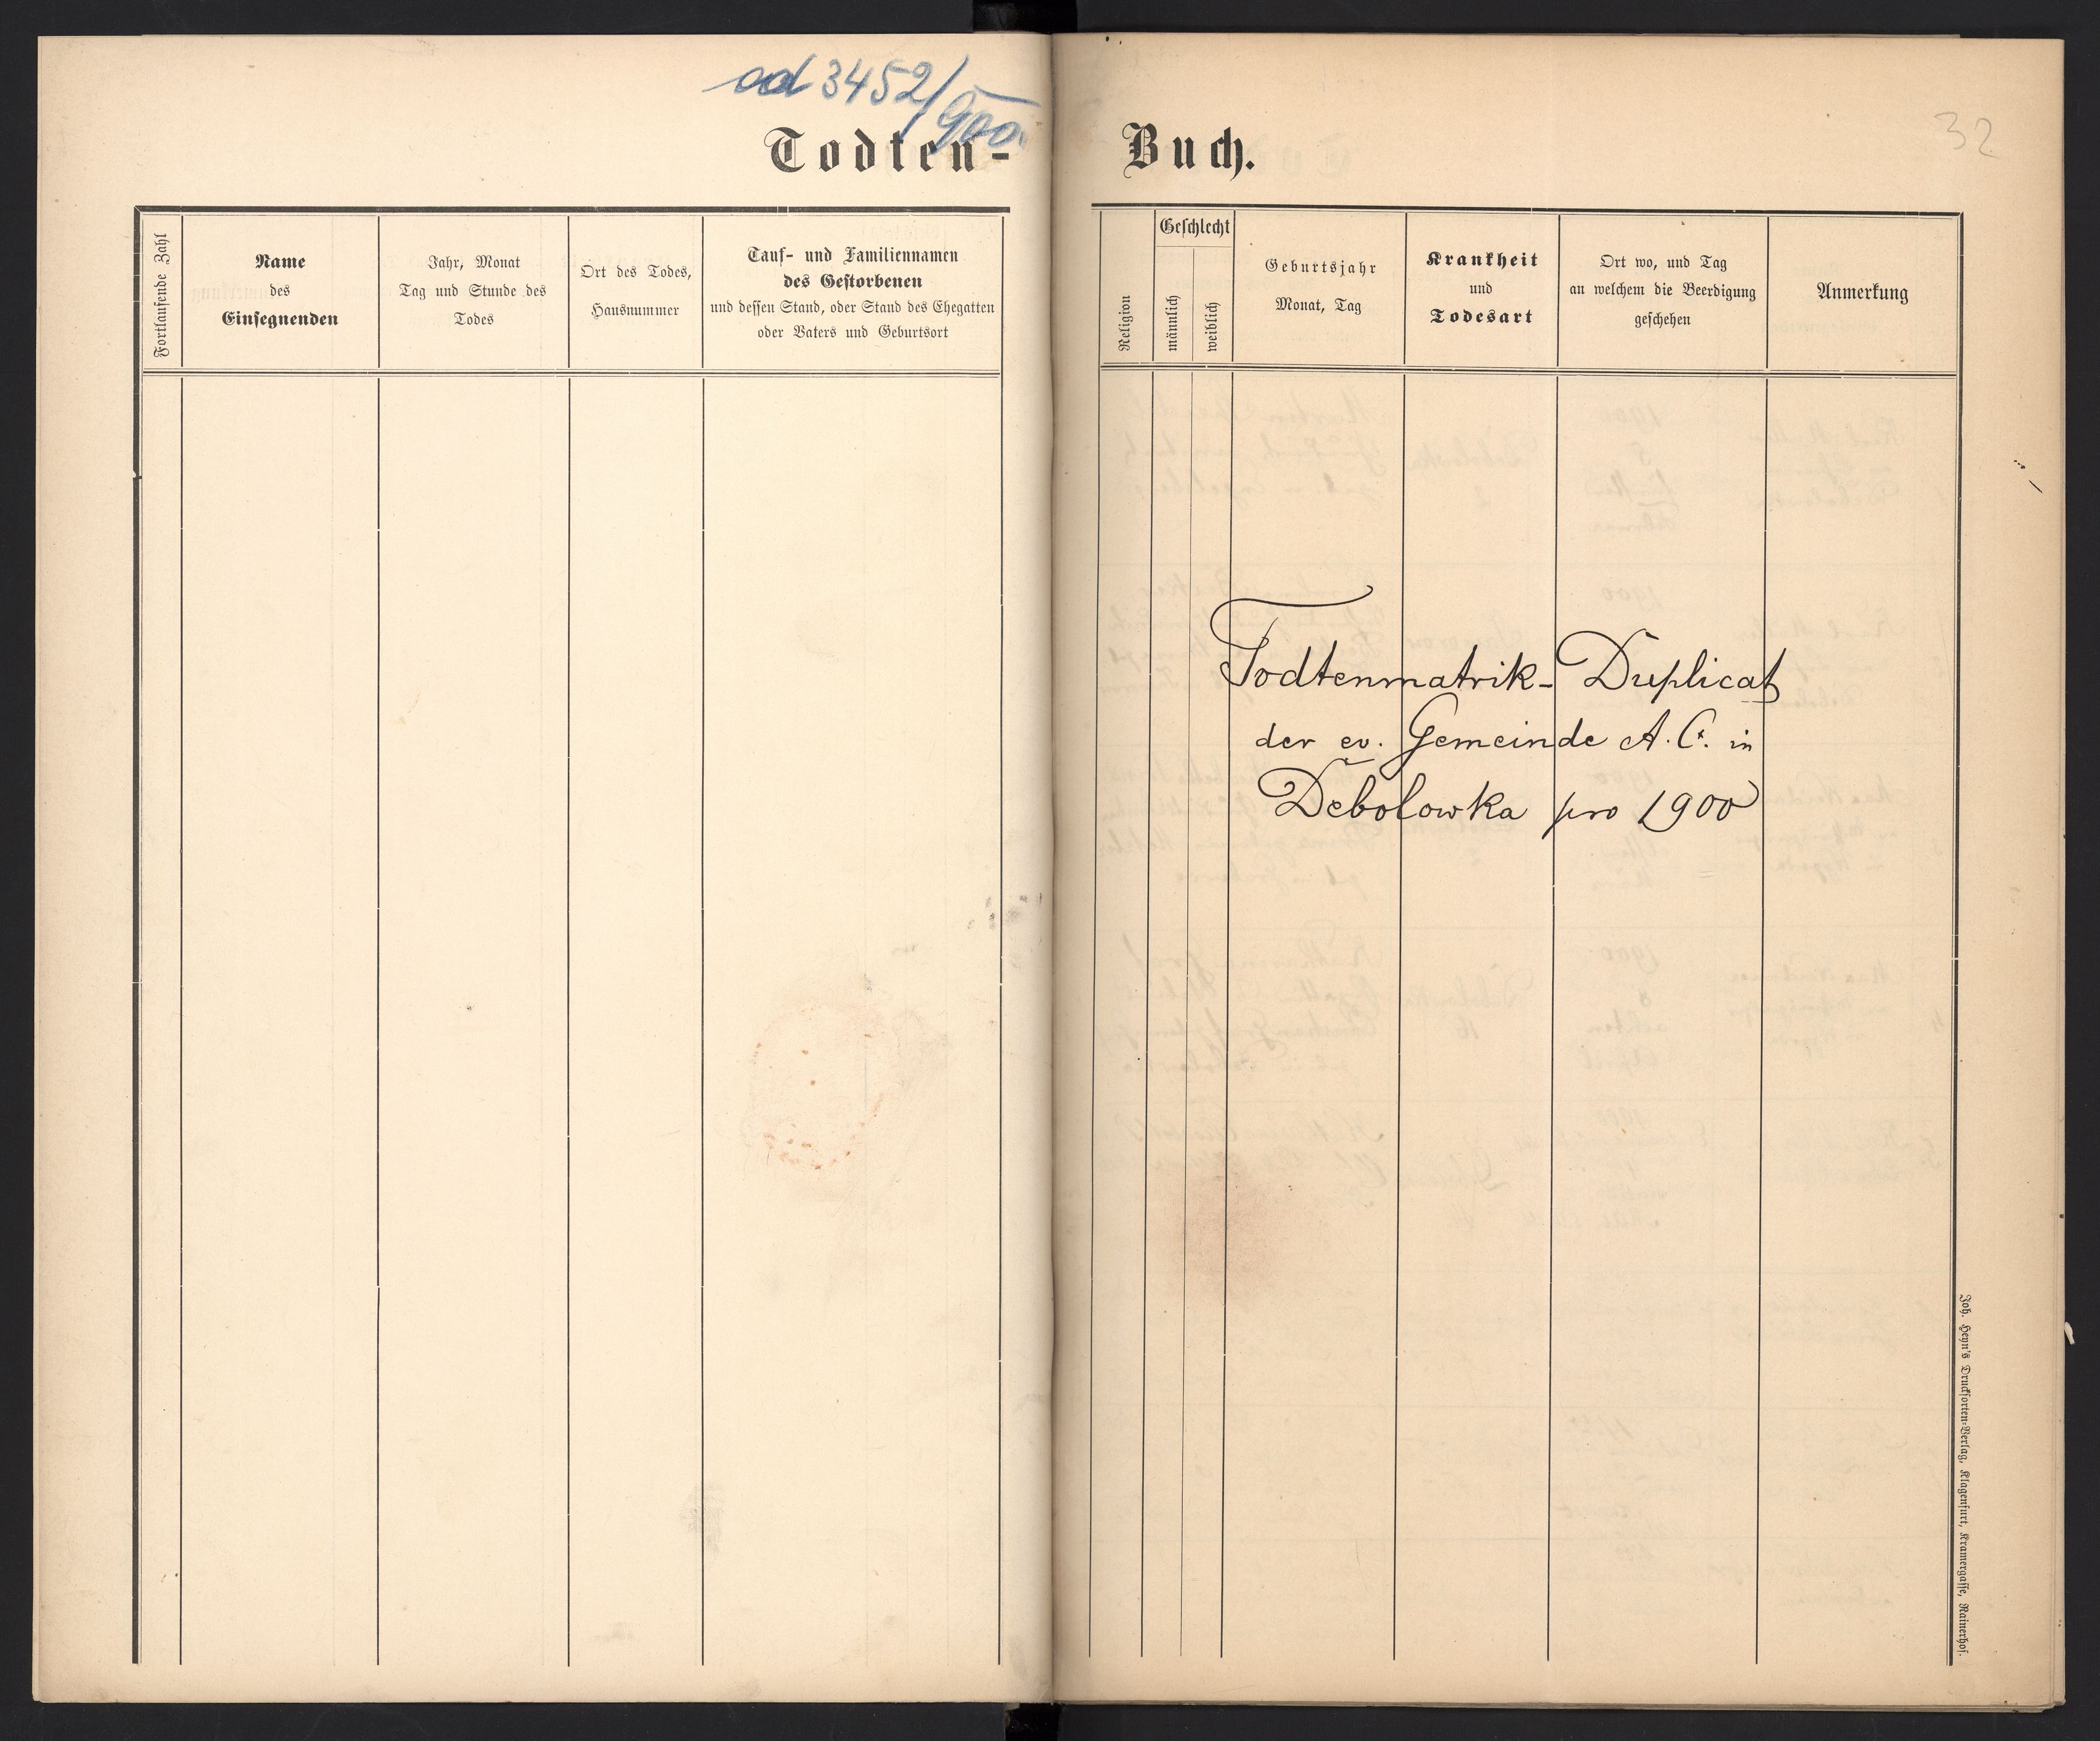 ad 3452/900.
Todten-
Buch.
32
Fortlaufende Zahl
Name
des
Einsegnenden
Jahr, Monat
Tag und Stunde des
Todes
Ort des Todes,
Hausnummer
Tauf- und Familiennamen
des Gestorbenen
und dessen Stand, oder Stand des Ehegatten
oder Vaters und Geburtsort
Religion
Geschlecht
männlich
weiblich
Geburtsjahr
Monat, Tag
Krankheit
und
Todesart
Ort wo, und Tag
an welchem die Beerdigung
geschehen
Anmerkung
Todtenmatrik-Duplicat
der ev. Gemeinde A. C. in
Debolowka pro 1900
Joh. Heyn's Drucksorten-Verlag, Klagenfurt, Kramergasse, Rainerhof.